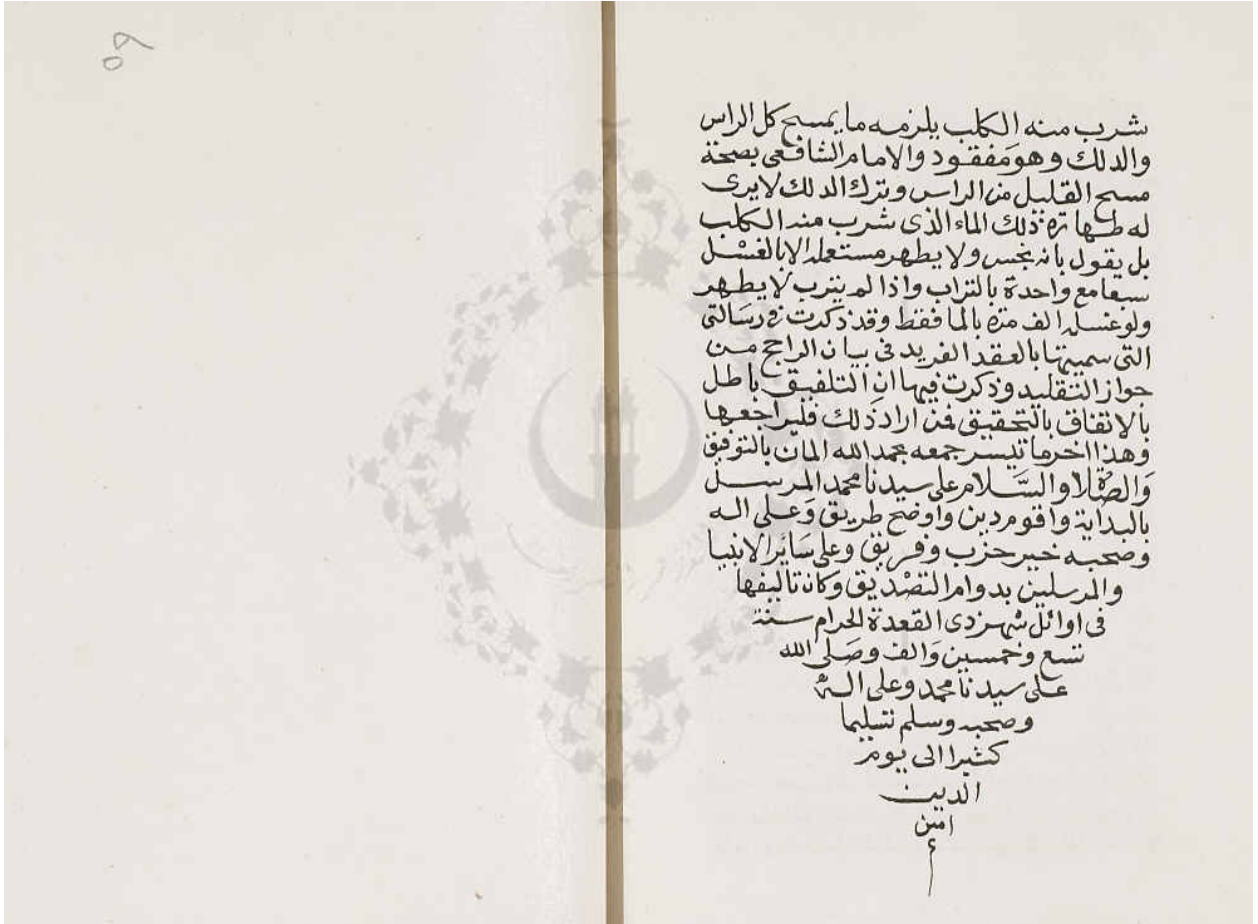 شرب منه الكلب يلزمه ما يمسح كل الراس
والدلك وهو مفقود والامام الشافعي بصحة
مسح القليل من الراس وترك الدلك لا يرى
له طهارة ذلك الماء الذى شرب منه الكلب
بل يقول بانه نجس ولا يطهر مستعمله الا بالغسل
سبعا مع واحدة بالتراب واذا لم يترب لا يطهر
ولو غسله الف مرة بالما فقط وقد ذكرت في رسالتى
التى سميتها بالعقد الفريد في بيان الراجح من
جواز التقليد وذكرت فيها ان التلفيق باطل
بالاتفاق بالتحقيق فمن اراد ذلك فليراجعها
وهذا اخر ما تيسر جمعه بحمد الله المان بالتوفيق
والصلاة والسلام على سيدنا محمد المرسل
بالبداية واقوم دين واوضح طريق وعلى اله
وصحبه خير حزب وفريق وعلى سائر الانبيا
والمرسلين بدوام التصديق وكان تاليفها
فى اوائل شهر ذى القعدة الحرام سنة
تسع وخمسين والف وصلى الله
على سيدنا محمد وعلى اله
وصحبه وسلم تسليما
كثيرا الى يوم
الدين
امين
٥٩